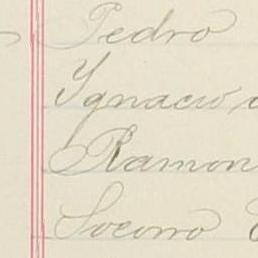 Pedro
Ygnacio
Ramon
Socorro